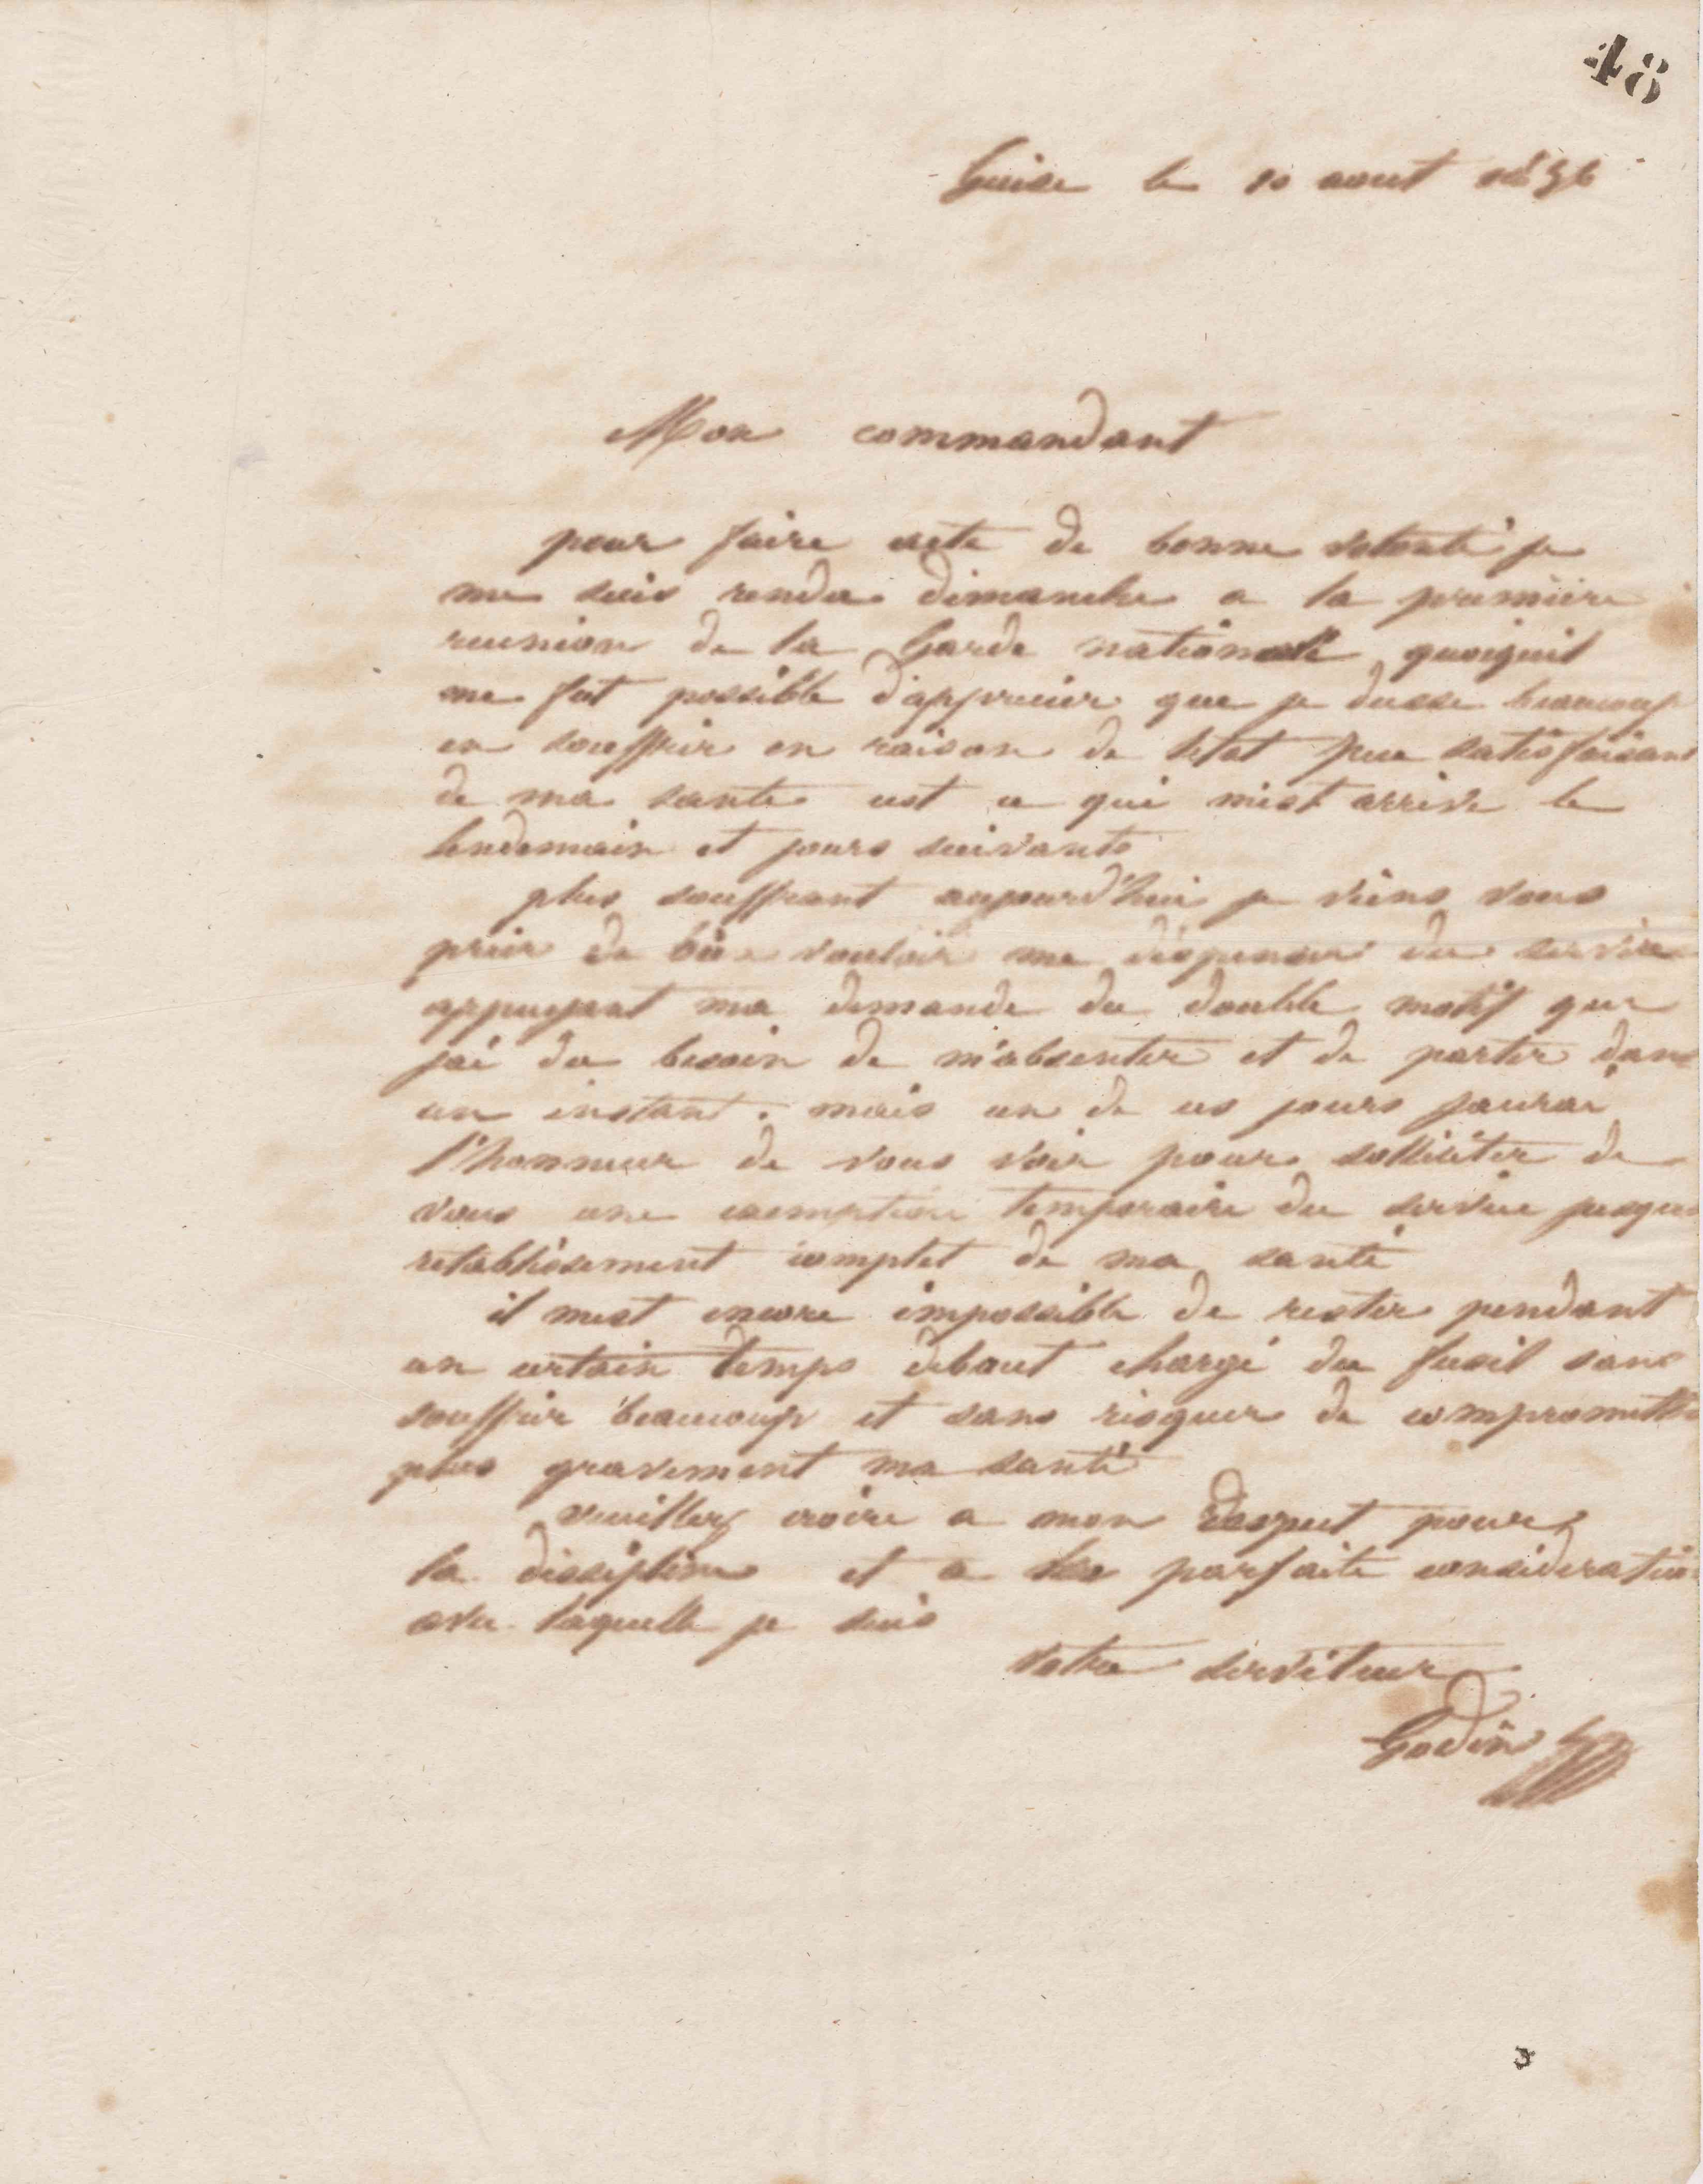 48
Guise le 10 aout
Mon commandant
pour faire acte de bonne volonté je
me suis rendu dimanche a la premiere
reunion de la Garde nationale quoiquil
me fut possible d'apprecier que je dusse beaucoup
en souffrir en raison de letat peu satisfaisant
de ma santé cest ce qui mest arrivé le
lendemain et jours suivants
plus souffrant aujourd'hui je viens vous
prier de bien vouloir me dispenser du service
appuyant ma demande du double motif que
jai du besoin de m'absenter et de partir dans
un instant. mais un de ces jours jaurai
l'honneur de vous voir pour solliciter de
vous une exemption temporaire du service jusqu
retablissement complet de ma santé
il mest encore impossible de rester pendant
un certain temps debout chargé du fusil sans
souffrir beaucoup et sans risquer de compromettre
plus gravement ma santé
veuillez croire a mon respect pour
la discipline et a la parfaite consideration
avec laquelle je suis
votre serviteur
Godin